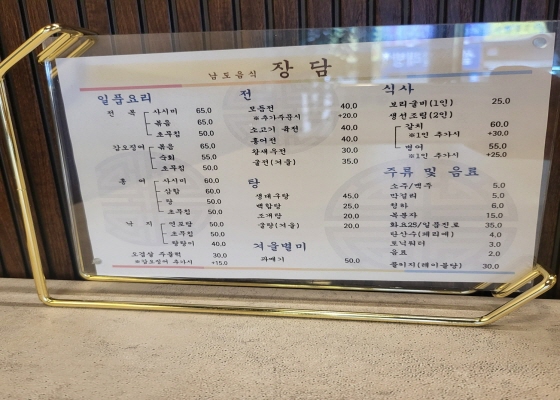 남도음식 장담
일품요리
전 복 사시미 65.0
볶음 65.0
초무침 50.0
갑오징어 볶음 65.0
숙회 55.0
초무침 50.0
홍 어 사시미 60.0
삼합 60.0
탕 50.0
초무침 50.0
낙 지 연포탕 50.0
초무침 50.0
탕탕이 40.0
오겹살 두루치기 30.0
※갑오징어 추가시 +15.0
전
모듬전 40.0
※추가주문시 +20.0
소고기 육전 40.0
홍어전 40.0
왕새우전 30.0
굴전(겨울) 35.0
탕
생대구탕 45.0
백합탕 25.0
조개탕 20.0
굴탕(겨울) 20.0
겨울별미
과메기 50.0
식사
보리굴비(1인) 25.0
생선조림(2인)
갈치 60.0
※1인 추가시 +30.0
병어 55.0
※1인 추가시 +25.0
주류 및 음료
소주/맥주 5.0
막걸리 5.0
청하 6.0
복분자 15.0
화요25/일품진로 35.0
탄산수(페리에) 4.0
토닉워터 3.0
음료 2.0
콜키지(테이블당) 30.0